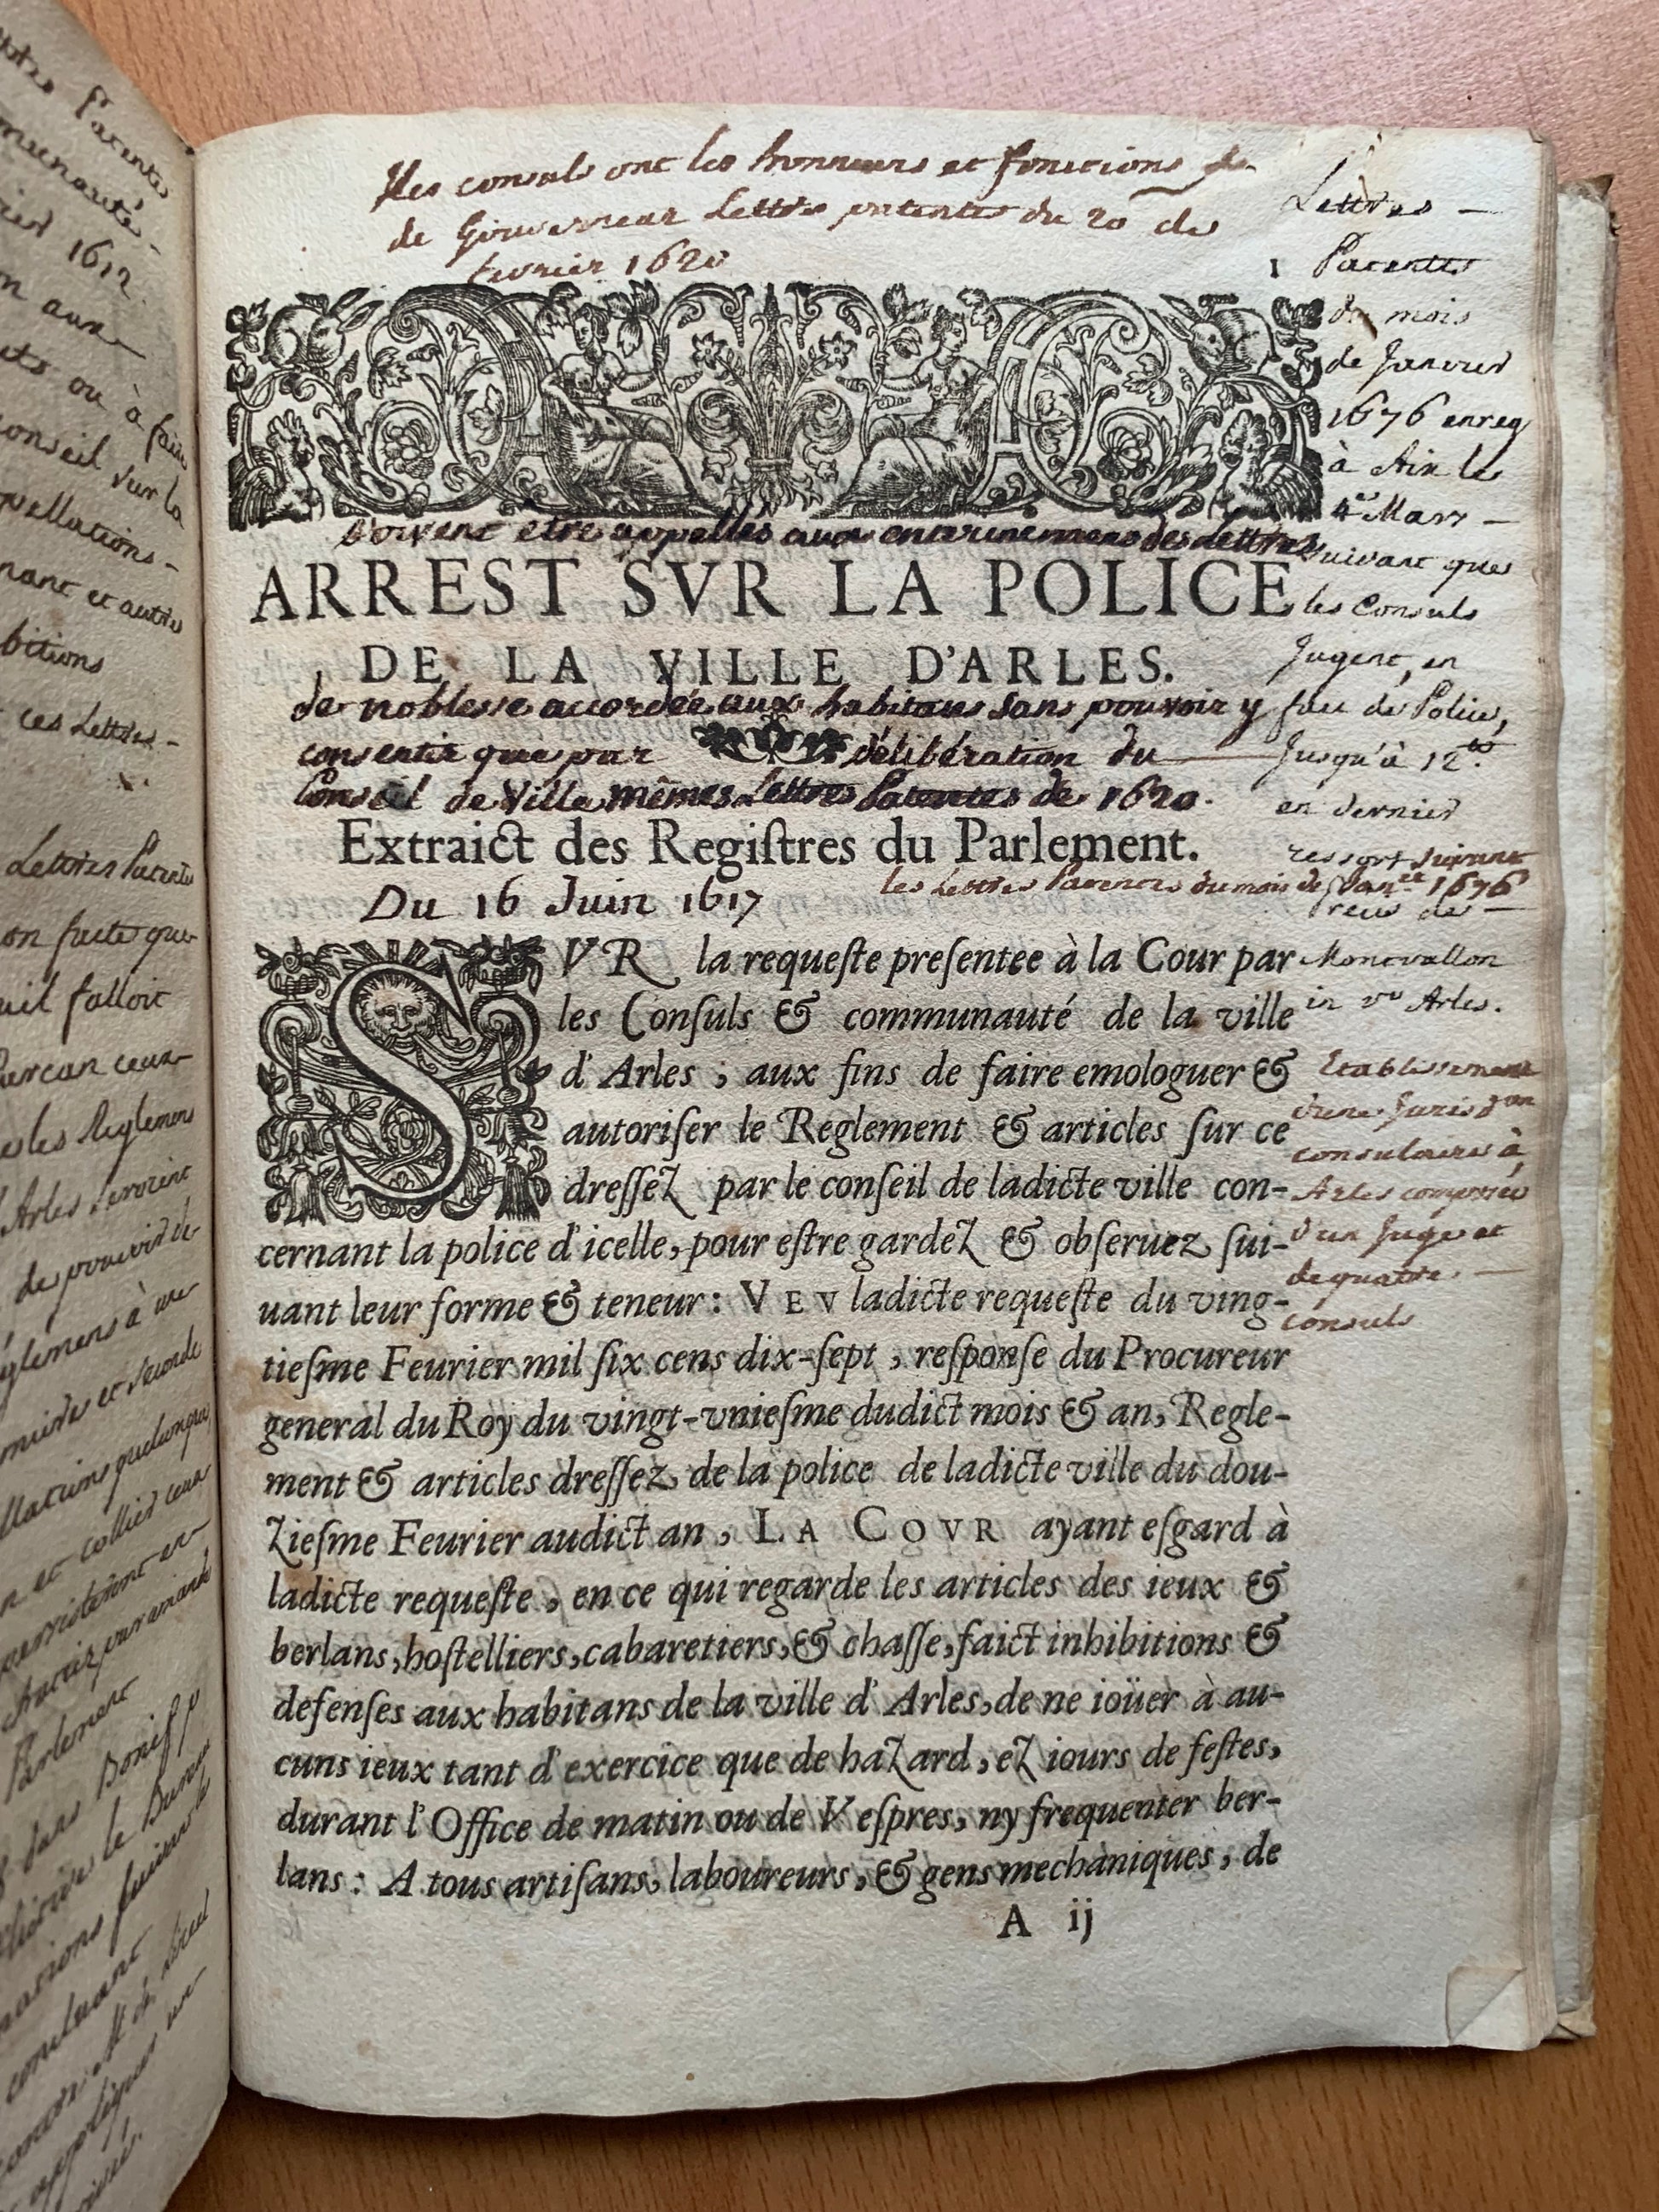 Parente
munauté
1612.
n aux
ts ou à faire
conseil sur la
pellations -
nant et autre
bitions
ces Lettres -
Lettres Patentes
on faite que
uil falloit
les Reglemens
Arles seroient
de pouvoir de
glemens à un
n et collier ceux
Parlement
Les consuls ont les honneurs et fonctions de
de Gouverneur Lettres patentes du 20 de
fevrier 1620
doivent etre appellés aux enterinemens des Lettres
ARREST SVR LA POLICE
DE LA VILLE D'ARLES.
de noblesse accordée aux habitans sans pouvoir y
consentir que par délibération du
Conseil de Ville mêmes Lettres Patentes de 1620.
Extraict des Regiſtres du Parlement.
Du 16 Juin 1617
SVR la requeſte preſentee à la Cour par
les Conſuls & communauté de la ville
d'Arles ; aux fins de faire emologuer &
autoriſer le Reglement & articles ſur ce
dreſſez par le conſeil de ladicte ville con-
cernant la police d'icelle, pour eſtre gardez & obſeruez ſui-
uant leur forme & teneur : VEV ladicte requeſte du ving-
tieſme Feurier mil ſix cens dix-ſept , reſponſe du Procureur
general du Roy du vingt-vnieſme dudict mois & an, Regle-
ment & articles dreſſez, de la police de ladicte ville du dou-
zieſme Feurier audict an , LA COVR ayant eſgard à
ladicte requeſte , en ce qui regarde les articles des ieux &
berlans, hoſtelliers, cabaretiers, & chaſſe, faict inhibitions &
defenſes aux habitans de la ville d'Arles, de ne ioüer à au-
cuns ieux tant d'exercice que de hazard , ez iours de feſtes,
durant l'Office de matin ou de Veſpres, ny frequenter ber-
lans : A tous artiſans, laboureurs , & gens mechaniques , de
A ij
Lettres -
1 Patentes
du mois
de Janvier
1676 enreg
à Aix le
4e Mars -
suivant que
les Consuls
Jugent, en
fait de Police,
Jusqu'à 12 tt
en dernier
ressort suivant
les Lettres Patentes du mois de Janer 1676
de -
Montvallon
in vo Arles.
Etablissement
d'une Jurisdon
consulaire à
Arles composée
d'un Juge et
de quatre -
consuls